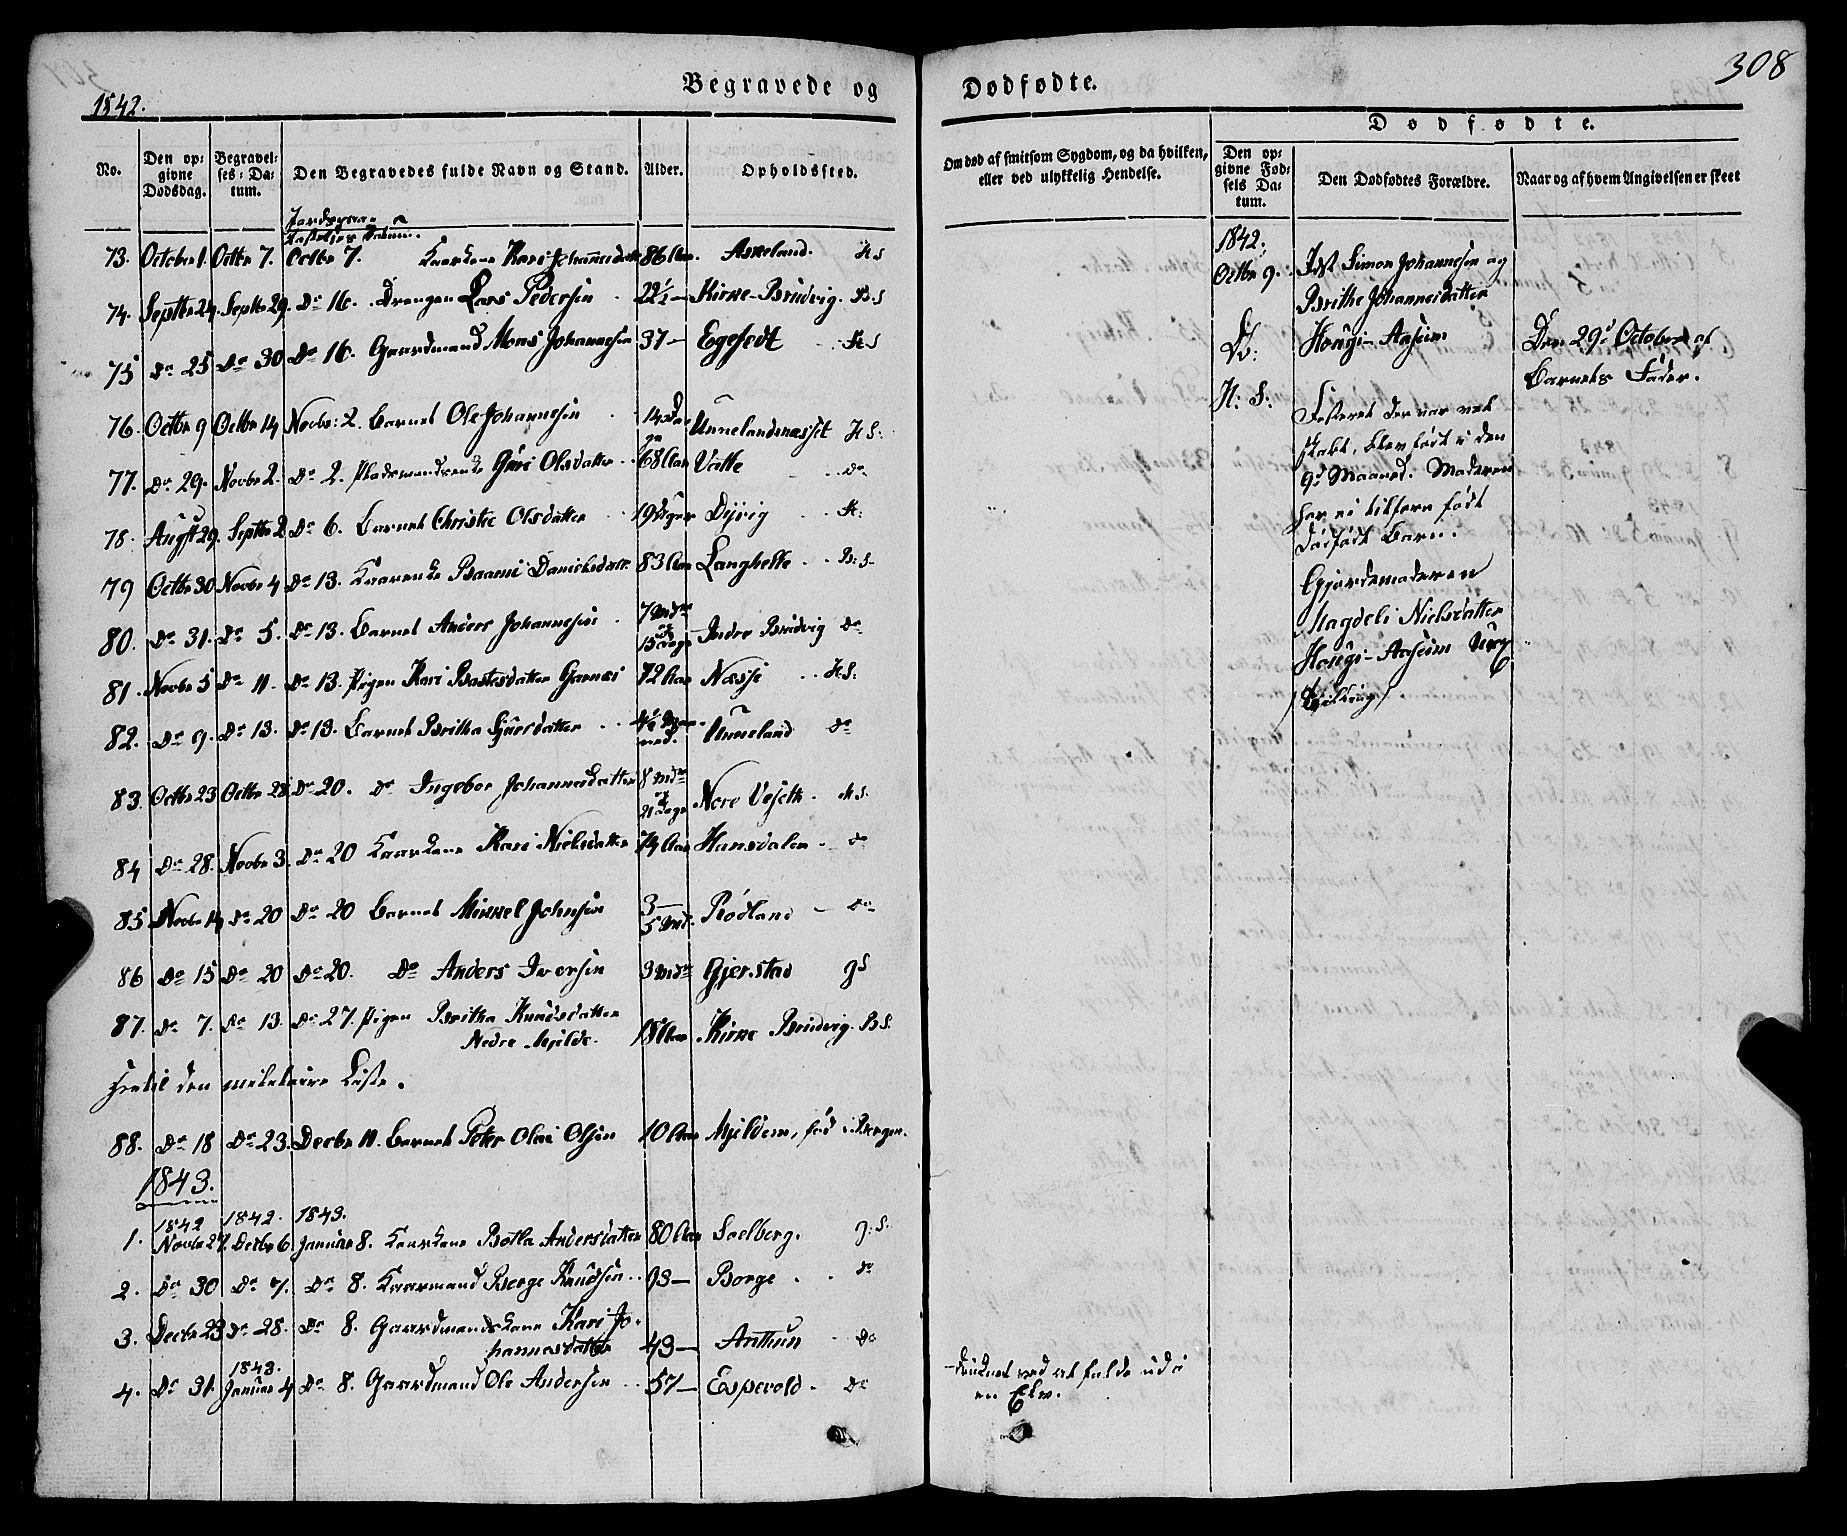 308
1842.
Begravede og Dødfødte.
No. Den opgivne Dødsdag. Begravelses-Datum. Den Begravedes fulde Navn og Stand. Alder. Opholdssted. Om død af smitsom Sygdom, og da hvilken, eller ved ulykkelig Hendelse.
Dødfødte.
Den opgivne Fødsels Datum. Den Dødfødtes Forældre. Naar og af hvem Angivelsen er skeet
73. October 1. Octbr 7. Octbr 7. Kaarkone Kari Johannesdatter 86 Aar. Askeland. H S
74. Septbr 24. Septbr 29. Do 16. Drengen Lars Pedersen 22½ — Kirke-Brudvig. B. S
75 Do 25 Do 30 Do 16. Gaardmand Mons Johannesen 37 — Egesedt H S
76. Octbr 9 Octbr 14 Novbr: 2. Barnet Ole Johannesen 14 Dage Unnelandsnæsset H S:
77. Do 29. Novbr 2. Do 2. Pladsmandsenke Guri Olsdatter 68 Aar Vette do
78. Augst 29. Septbr 2 Do 6. Barnet Christie Olsdatter 19 Dage Dyvig H:
79 Octbr 30 Novbr 4 Do 13. Kaarenke Danielsdatter 83 Aar Langhelle B: S.
80. Do 31. Do 5. Do 13. Barnet Anders Johannesen 7 Mdr og 15 Dage Indre Brudvig do
81. Novbr 5 Do 11. Do 13. Pigen Kari Bastesdatter Garnæs 72 Aar Næsse H S:
82. Do 9. Do 13. Do 13. Barnet Britha Sjursdatter Unneland do
83. Octbr 23 Octbr 28 Do 20. do Ingebor Johannesdatter 8 Mdr og 21 Dage Nere Veseth H S.
84 Do 28. Novbr 3. Do 20 Kaarkone Kari Nielsdatter 74 Aar Hansdalen do
85 Novbr 14 do 20 Do 20 Barnet Mikkel Johnsen 3 — 5 Md. Rødland do
86 Do 15 Do 20 Do 20. Do Anders Iversen 3 Mdr Gjerstad g S
87. Do 7. Do 13. Do 27. Pigen Britha Knudsdatter
Nedre Mjelde. 18 Aar Kirke Brudvig. B S.
Hertil den militaire Liste.
88. Do 18 Do 23. Decbr 11. Barnet Peter Olai Olsen 10 Aar Mjeldem, fød i Bergen.
1843.
1842 1842. 1843.
1. Novbr 27. Decbr 6. Januar 8. Kaarkone Botla Andersdatter 80 Aar Soelberg. g: S.
2. Do 30 Do 7. Do 8. Kaarmand Berge Knudsen 93 — Borge do
3. Decbr 23 Do 28. Do 8. Gaardmandskone Kari Jo-
hannesdatter 43 — Anthun Do
1843.
4. Do 31. Januar 4 Do 8. Gaardmand Ole Andersen 57 — Espevold do
— druknet ved at falde ud i
en Elv.
1842.
Octbr 9.
Do:
H: S:
Idst Simon Johannesen og
Brithe Johannesdatter
Houge-Aasum
Fosteret der var vel
skabt, blev født i den
9de Maaned. Moderen
har ei tilforn født
dødfødt Barn.
Gjordemoderen
Magdeli Nielsdatter
Houge-Aasum
Den 29de October af
Barnets Fader.